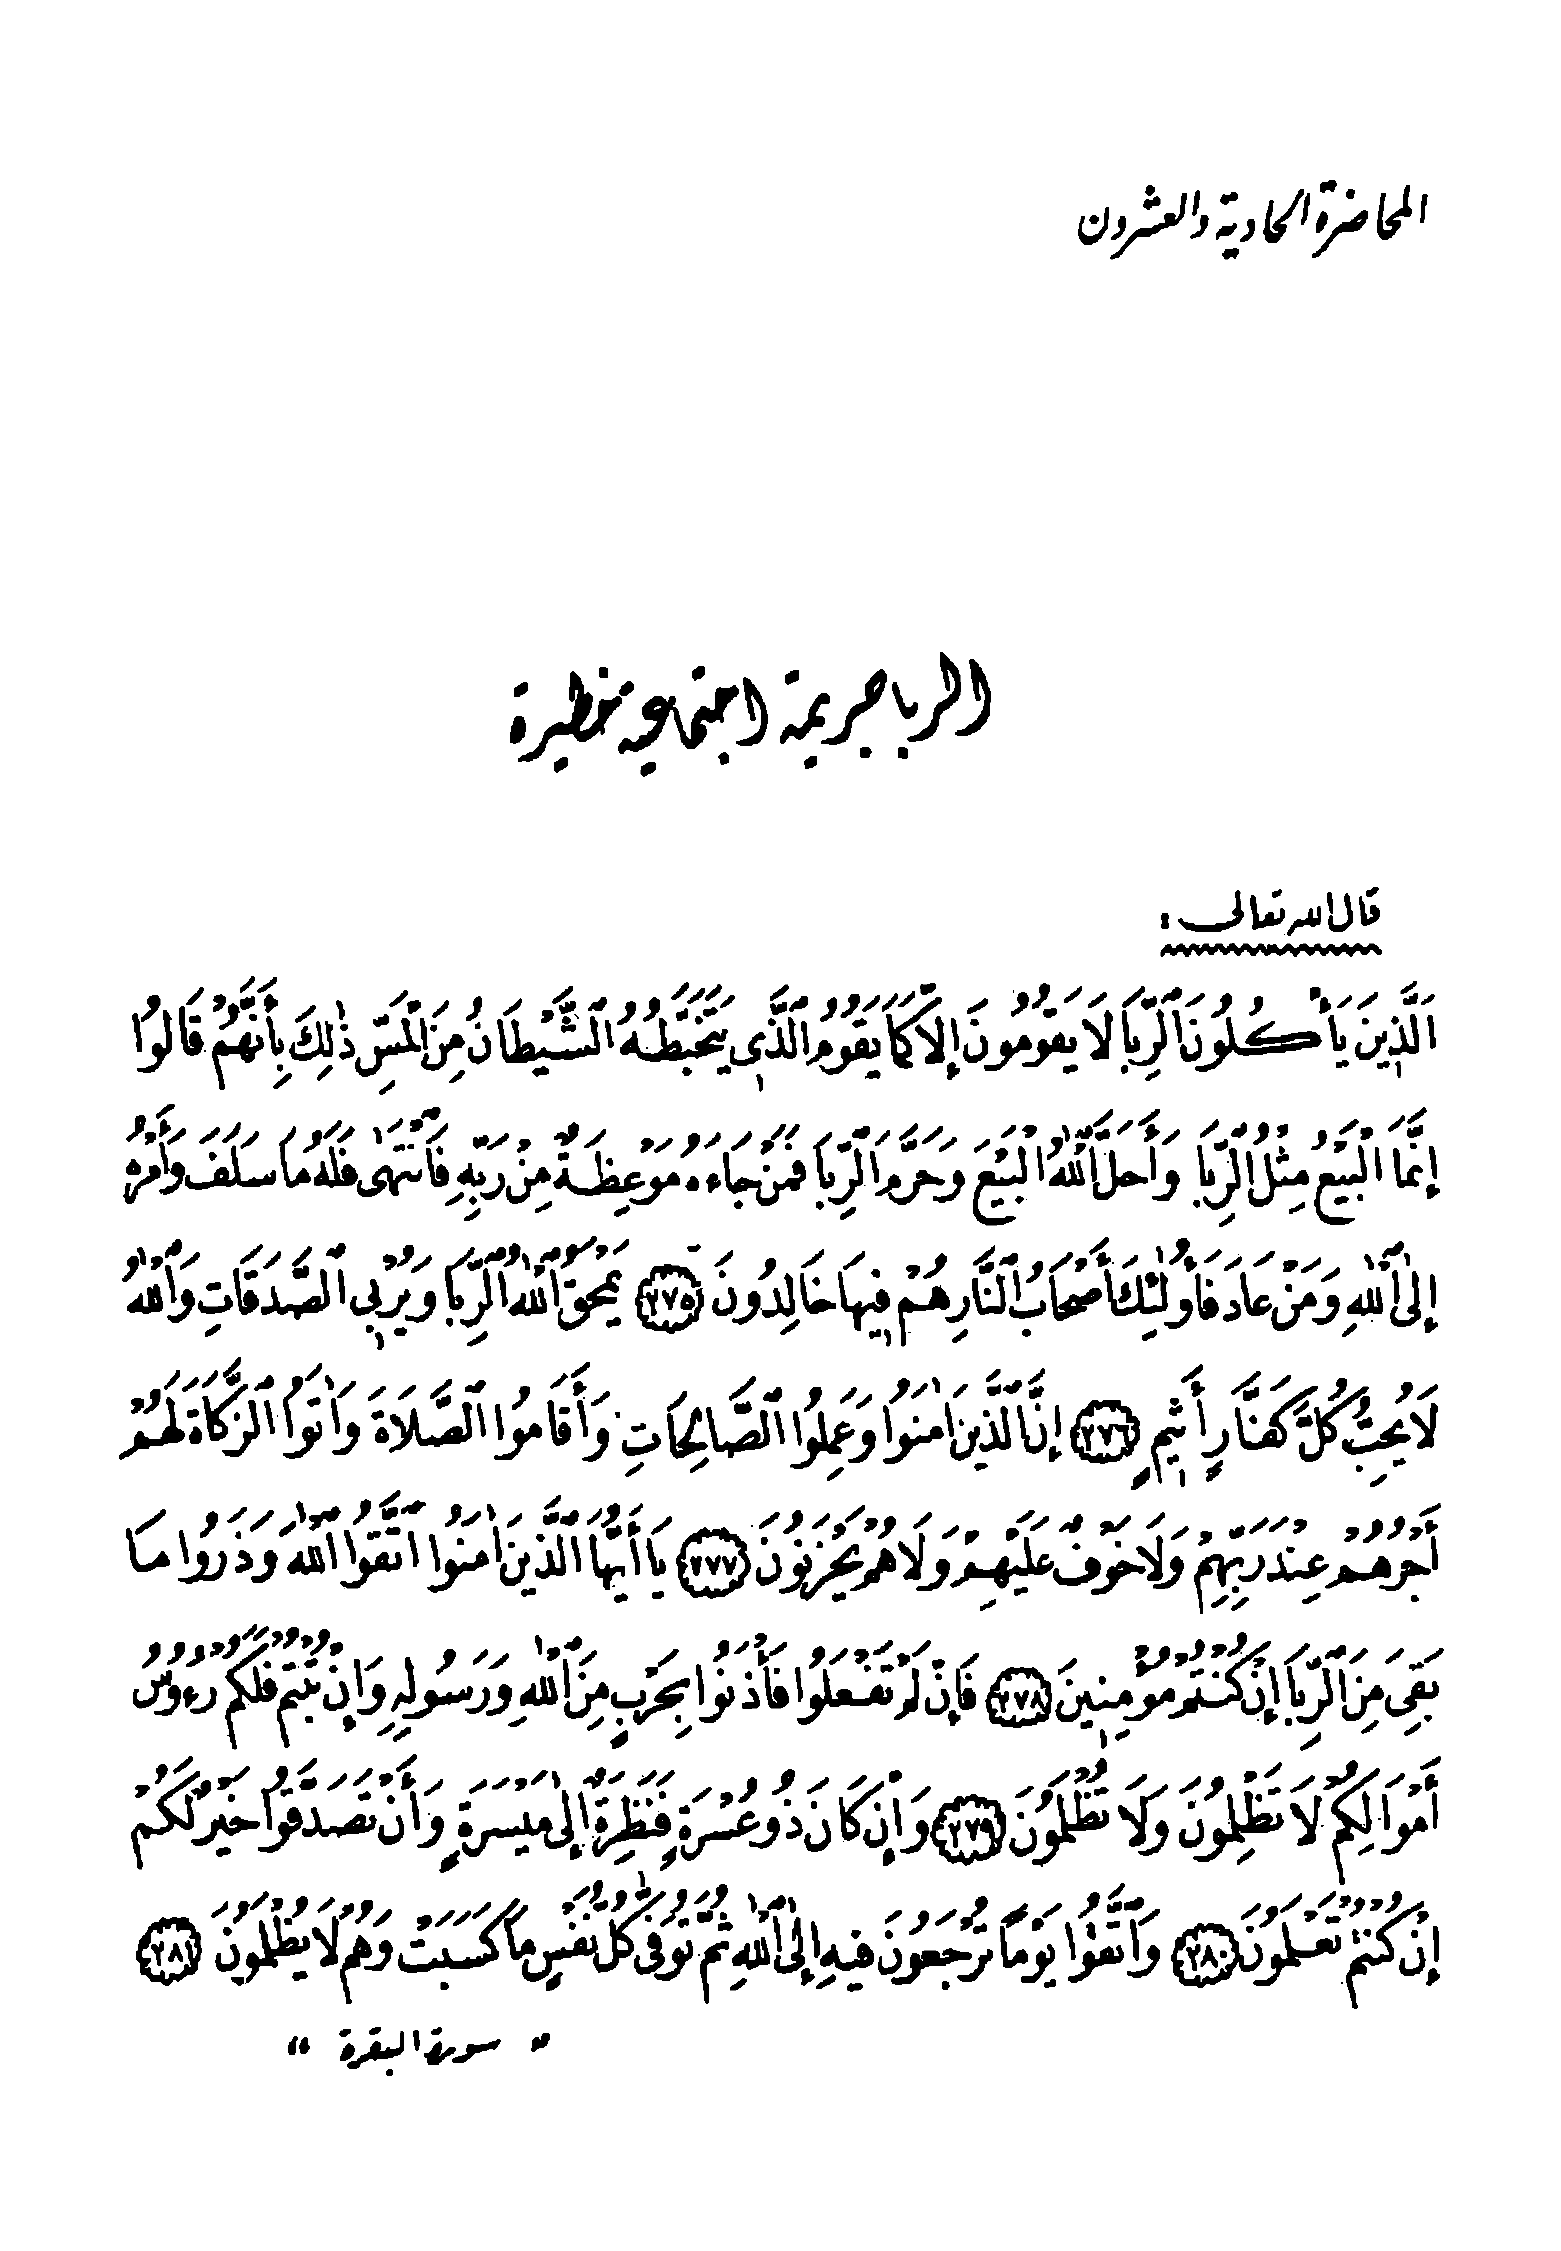 المحاضرة الحادية والعشرون
الربا جريمة اجتماعية خطيرة
قال الله تعالى :
اَلَّذِينَ يَأْكُلُونَ ٱلرِّبَا لَا يَقُومُونَ إِلَّا كَمَا يَقُومُ ٱلَّذِي يَتَخَبَّطُهُ ٱلشَّيْطَانُ مِنَ ٱلْمَسِّ ذٰلِكَ بِأَنَّهُمْ قَالُوا
إِنَّمَا ٱلْبَيْعُ مِثْلُ ٱلرِّبَا وَأَحَلَّ ٱللّٰهُ ٱلْبَيْعَ وَحَرَّمَ ٱلرِّبَا فَمَنْ جَاءَهُ مَوْعِظَةٌ مِنْ رَبِّهِ فَٱنْتَهٰى فَلَهُ مَا سَلَفَ وَأَمْرُهُ
إِلَى ٱللّٰهِ وَمَنْ عَادَ فَأُولٰئِكَ أَصْحَابُ ٱلنَّارِ هُمْ فِيهَا خَالِدُونَ ٢٧٥ يَمْحَقُ ٱللّٰهُ ٱلرِّبَا وَيُرْبِي ٱلصَّدَقَاتِ وَٱللّٰهُ
لَا يُحِبُّ كُلَّ كَفَّارٍ أَثِيمٍ ٢٧٦ إِنَّ ٱلَّذِينَ اٰمَنُوا وَعَمِلُوا ٱلصَّالِحَاتِ وَأَقَامُوا ٱلصَّلَاةَ وَاٰتَوُا ٱلزَّكَاةَ لَهُمْ
أَجْرُهُمْ عِنْدَ رَبِّهِمْ وَلَا خَوْفٌ عَلَيْهِمْ وَلَا هُمْ يَحْزَنُونَ ٢٧٧ يَا أَيُّهَا ٱلَّذِينَ اٰمَنُوا ٱتَّقُوا ٱللّٰهَ وَذَرُوا مَا
بَقِيَ مِنَ ٱلرِّبَا إِنْ كُنْتُمْ مُؤْمِنِينَ ٢٧٨ فَإِنْ لَمْ تَفْعَلُوا فَأْذَنُوا بِحَرْبٍ مِنَ ٱللّٰهِ وَرَسُولِهِ وَإِنْ تُبْتُمْ فَلَكُمْ رُءُوسُ
أَمْوَالِكُمْ لَا تَظْلِمُونَ وَلَا تُظْلَمُونَ ٢٧٩ وَإِنْ كَانَ ذُو عُسْرَةٍ فَنَظِرَةٌ إِلٰى مَيْسَرَةٍ وَأَنْ تَصَدَّقُوا خَيْرٌ لَكُمْ
إِنْ كُنْتُمْ تَعْلَمُونَ ٢٨٠ وَٱتَّقُوا يَوْمًا تُرْجَعُونَ فِيهِ إِلَى ٱللّٰهِ ثُمَّ تُوَفّٰى كُلُّ نَفْسٍ مَا كَسَبَتْ وَهُمْ لَا يُظْلَمُونَ ٢٨١
" سورة البقرة "